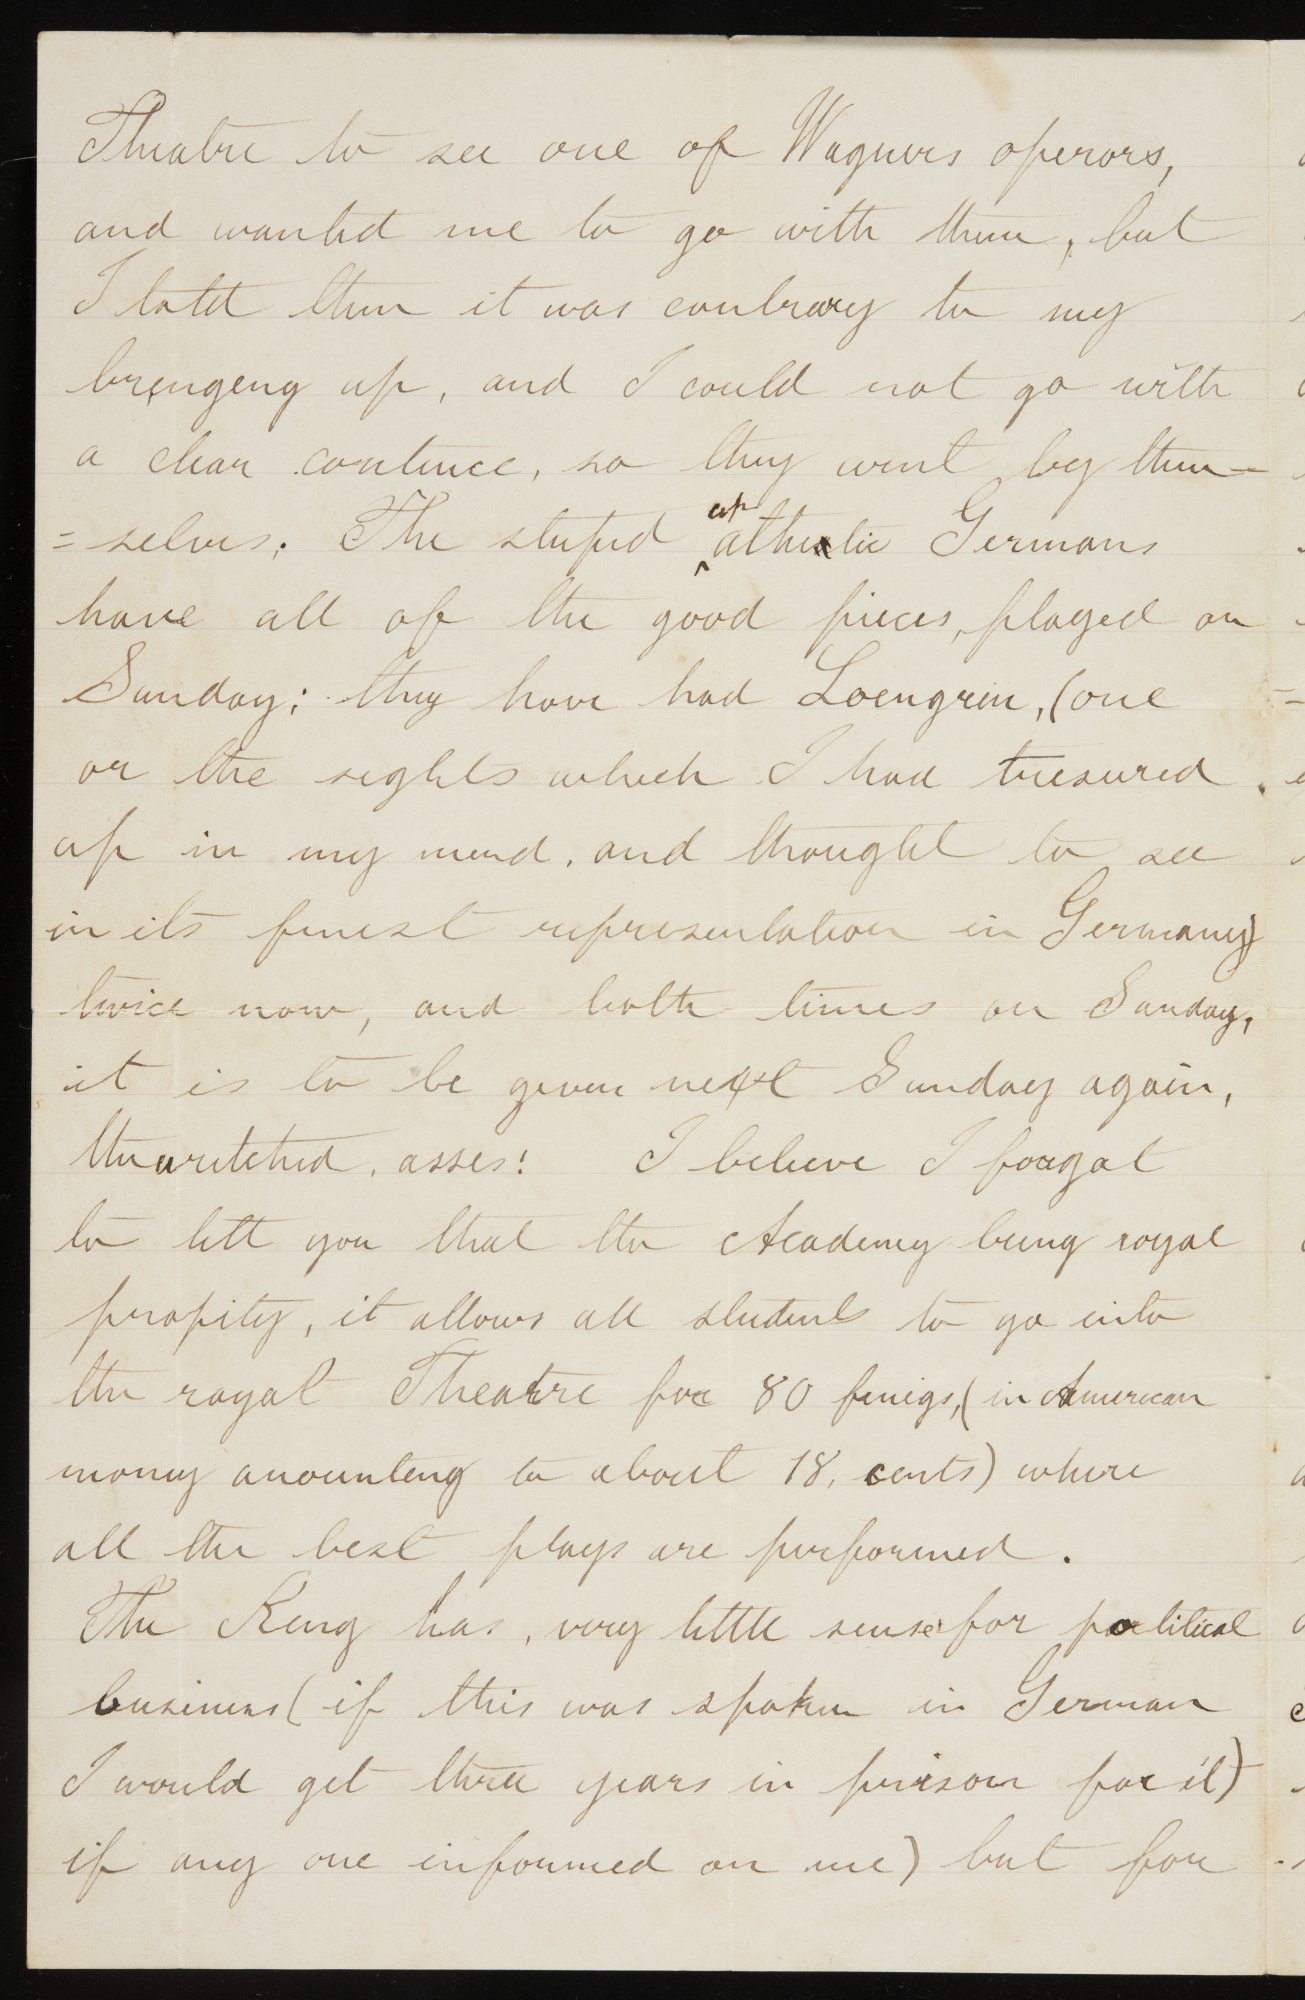 Theatre to see one of Wagners operors,
and wanted me to go with them, but
I told them it was contrary to my
bringing up, and I could not go with
a clear contince, so they went by them-
=selves. The stupid up athestic Germans
have all of the good pieces, played on
Sunday; they have had Loengrin, (one
or the sights which I had tresured
up in my mind, and thought to see
in its finest representation in Germany)
twice now, and both times on Sunday,
it is to be given next Sunday again,
the wretched, asses! I believe I forgot
to tell you that the Academy being royal
propity, it allows all students to go into
the royal Theatre for 80 finigs, (in American
money anounting to about 18, cents) where
all the best plays are performed.
The King has, very little sense for political
business (if this was spoken in German
I would get three years in prison for it)
if any one informed on me) but for